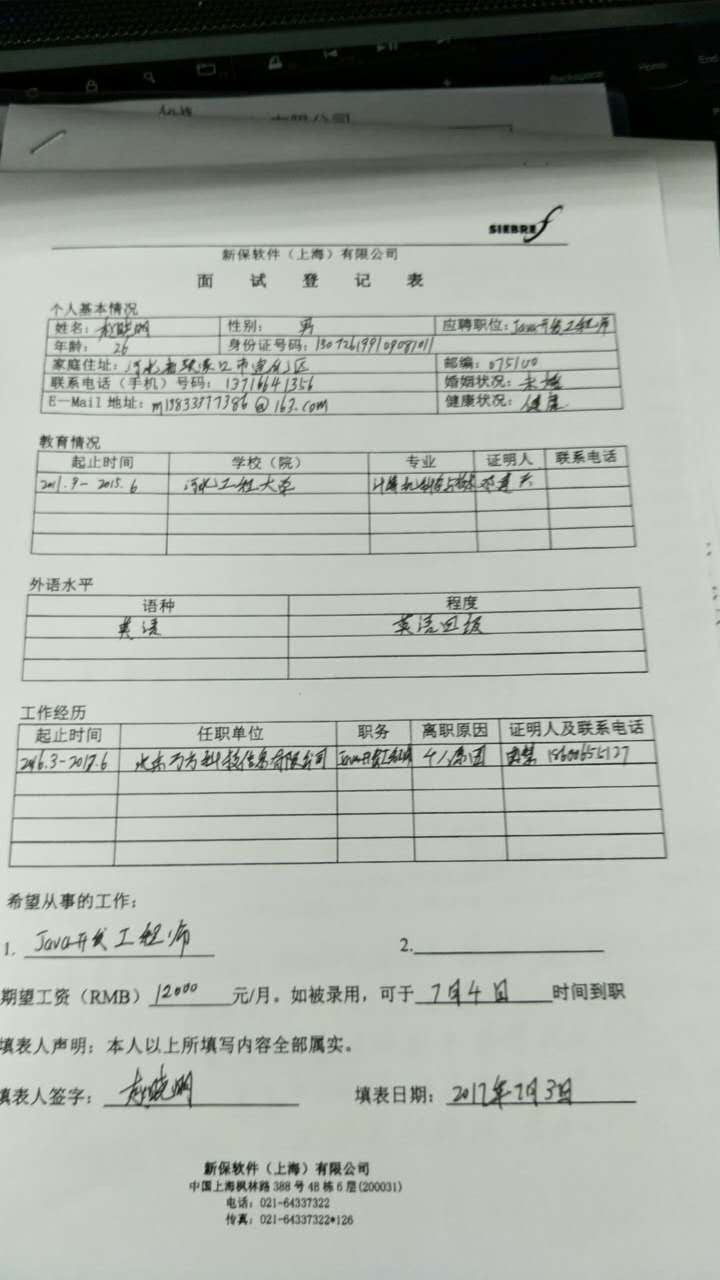 SIEBRE
新保软件（上海）有限公司
面 试 登 记 表
个人基本情况
姓名：赵晓明 性别： 男 应聘职位：Java开发工程师
年龄： 26 身份证号码：
家庭住址：河北省张家口市宣化区 邮编：075100
联系电话（手机）号码：13716641356 婚姻状况：未婚
E—Mail 地址：m19833377386@163.com 健康状况：健康
教育情况
起止时间 学校（院） 专业 证明人 联系电话
2011.9－2015.6 河北工程大学 计算机科学与技术
外语水平
语种 程度
英语 英语四级
工作经历
起止时间 任职单位 职务 离职原因 证明人及联系电话
2016.3－2017.6 北京万方科技信息有限公司 Java开发工程师 个人原因
希望从事的工作：
1. Java开发工程师 2.
期望工资（RMB）12000 元/月。如被录用，可于 7月4日 时间到职
填表人声明：本人以上所填写内容全部属实。
填表人签字：赵晓明 填表日期：2017年7月3日
新保软件（上海）有限公司
中国上海枫林路 388 号 4B 栋 6 层(200031)
电话：021-64337322
传真：021-64337322*126